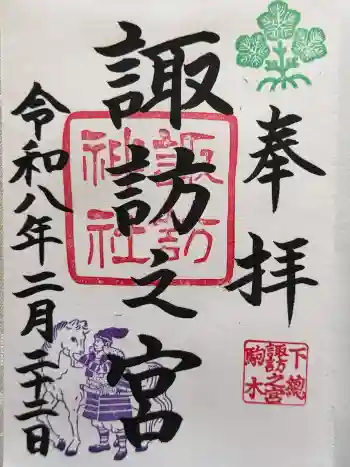 奉拝
諏訪之宮
令和八年二月二十二日
諏訪
神社
下總
諏訪之宮
駒木